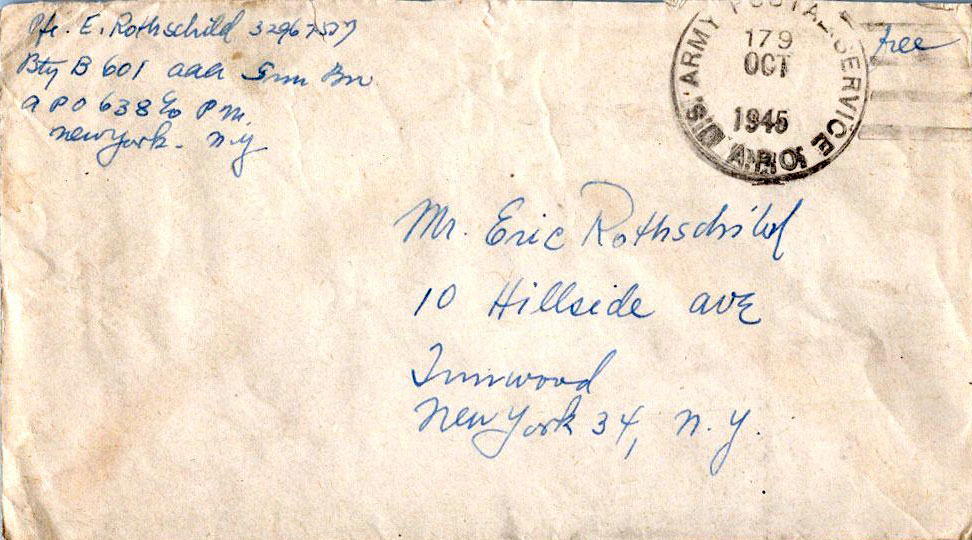 Pfc. E. Rothschild 32967527
Bty B 601 aaa Gun Bn
a P O 638 c/o P M.
New York. N.Y
ARMY POSTAL SERVICE
179
OCT
1945
A.P.O.
free
Mr. Eric Rothschild
10 Hillside ave
Innwood
New York 34, N.Y.